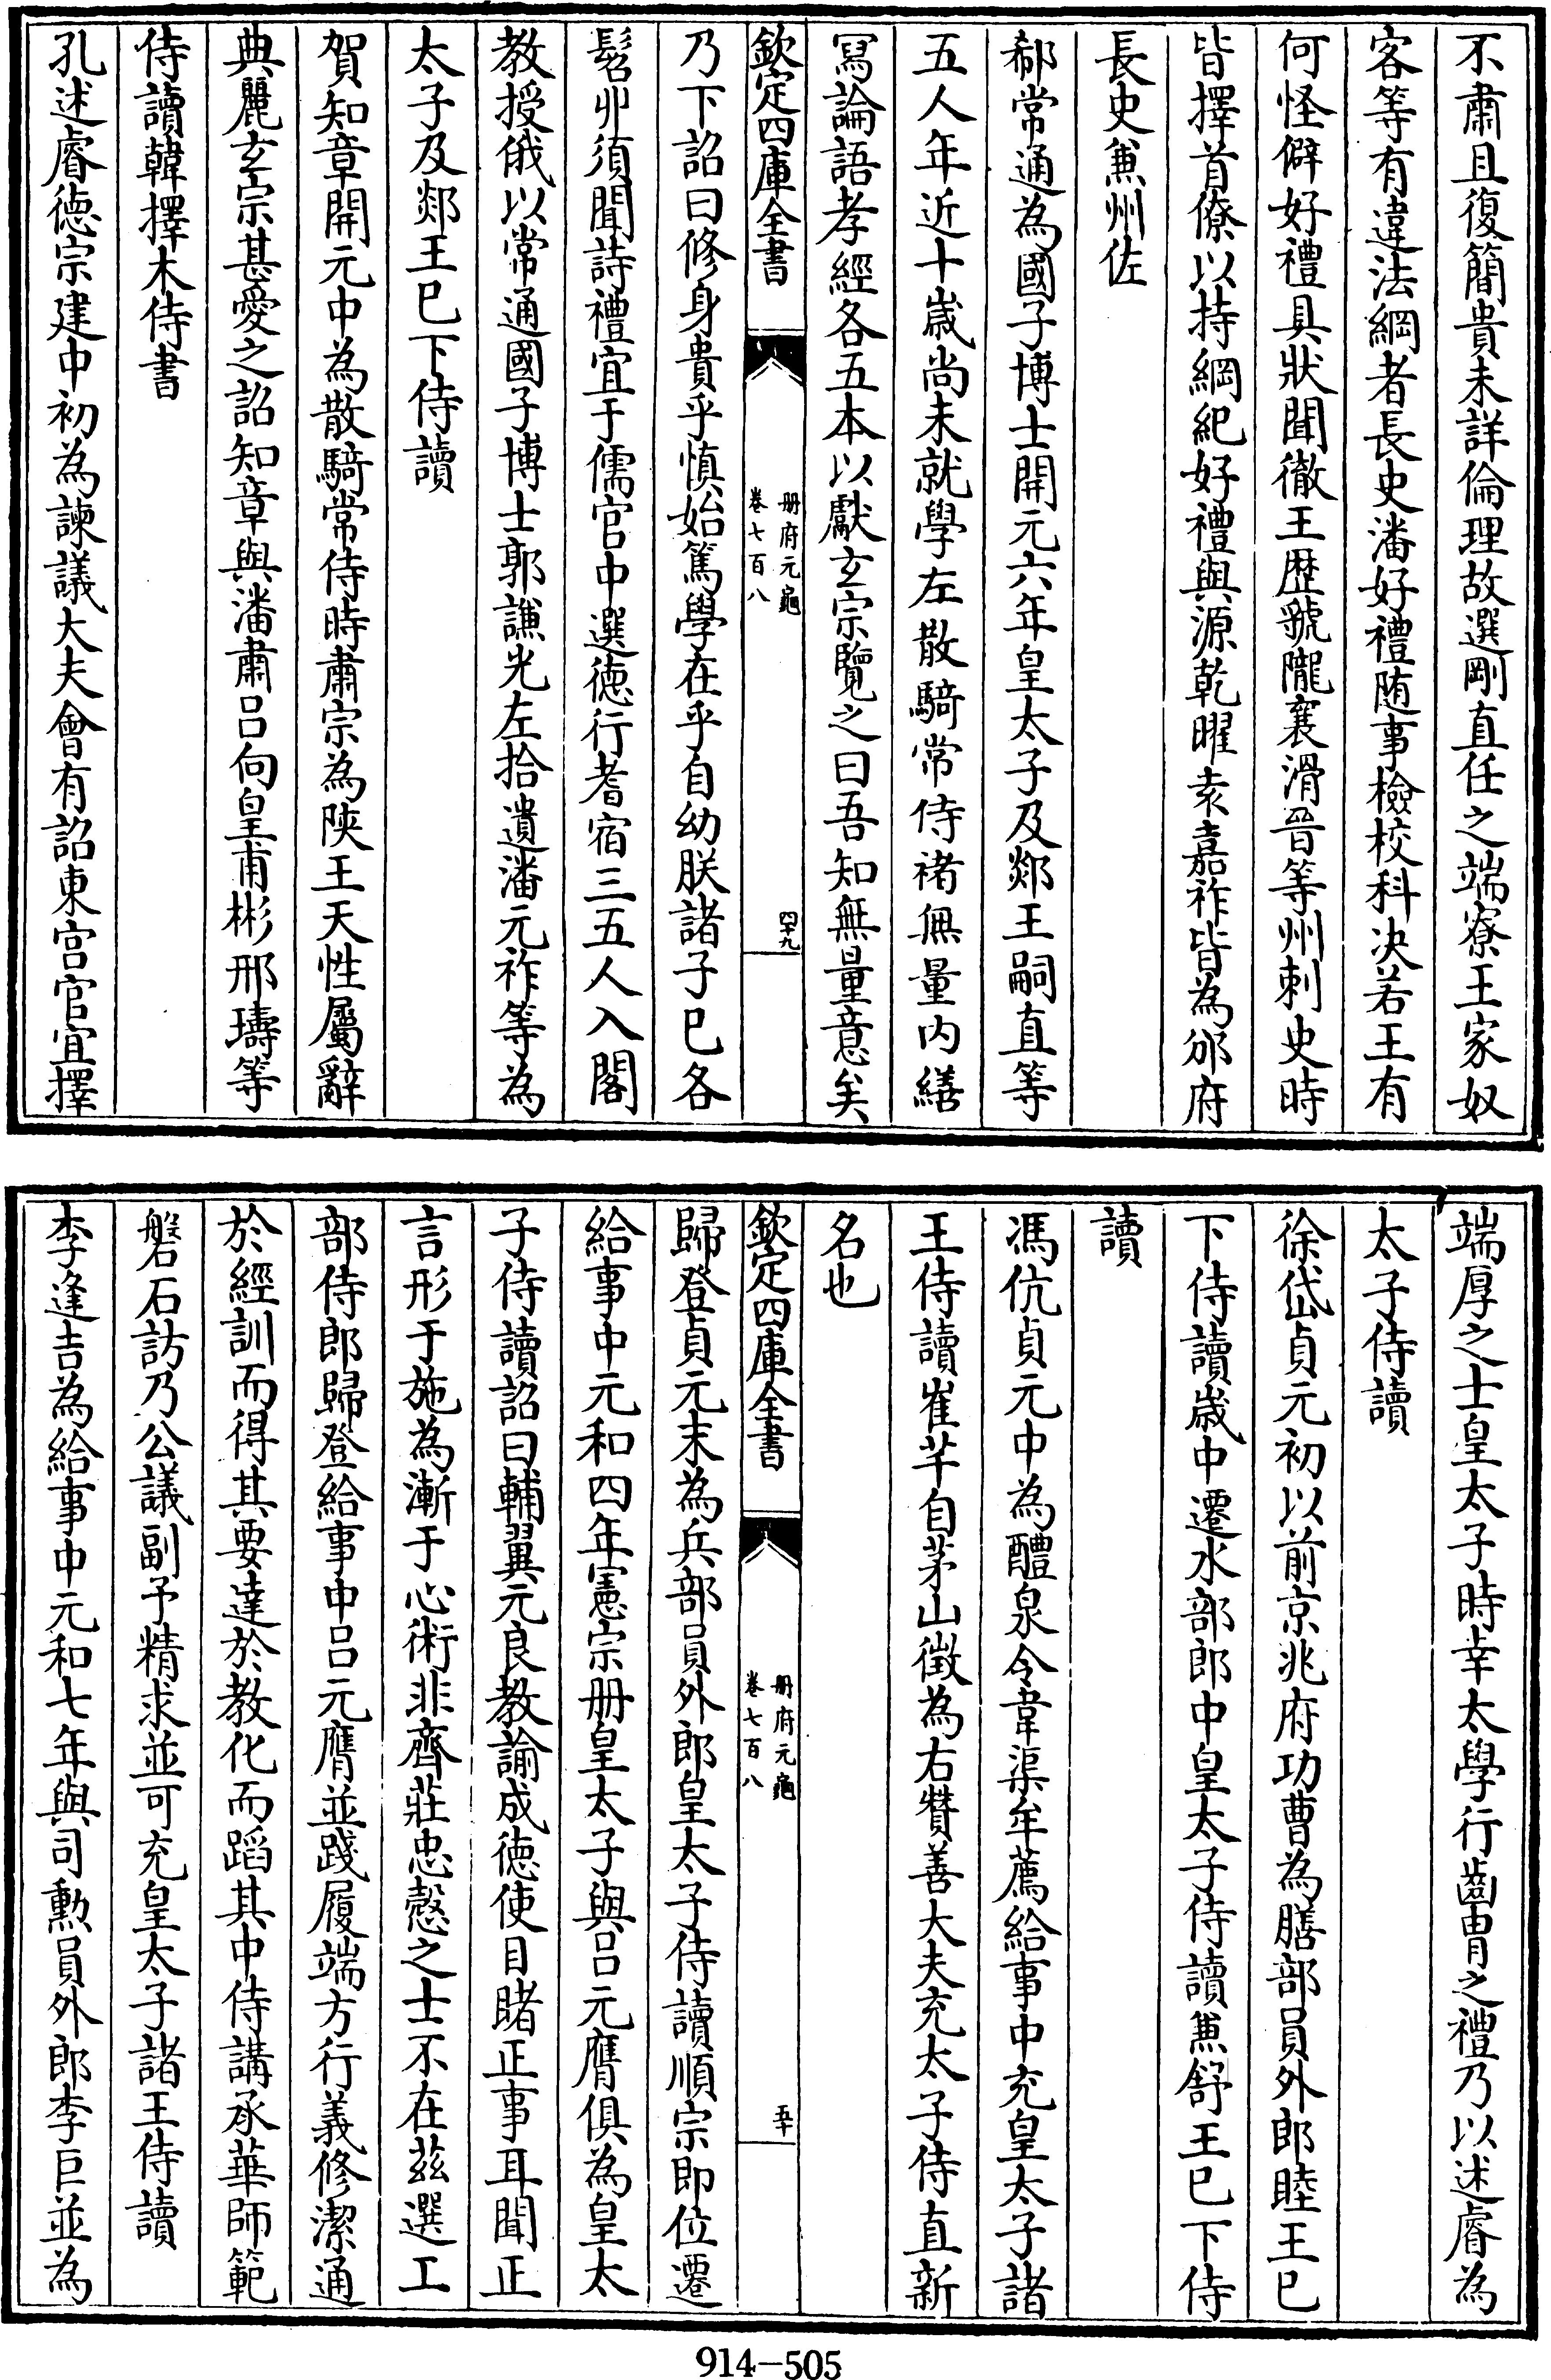 不肅且復簡貴未詳倫理故選剛直任之端寮王家奴
客等有違法綱者長史潘好禮随事檢校科决若王有
何怪僻好禮具狀聞徹王歴虢隴襄滑晉等州刺史時
皆擇首僚以持綱紀好禮與源乾曜袁嘉祚皆為邠府
長史兼州佐
郗常通為國子博士開元六年皇太子及郯王嗣直等
五人年近十歲尚未就學左散騎常侍禇無量内繕
冩論語孝經各五本以獻玄宗覽之曰吾知無量意矣
欽定四庫全書
册府元龜
卷七百八
四十九
乃下詔曰修身貴乎慎始篤學在乎自幼朕諸子已各
髫丱須聞詩禮宜于儒官中選徳行耆宿三五人入閣
教授俄以常通國子博士郭謙光左拾遺潘元祚等為
太子及郯王已下侍讀
賀知章開元中為散騎常侍時肅宗為陜王天性屬辭
典麗玄宗甚愛之詔知章與潘肅吕向皇甫彬邢璹等
侍讀韓擇木侍書
孔述睿徳宗建中初為諫議大夫會有詔東宫官宜擇
端厚之士皇太子時幸太學行齒胄之禮乃以述睿為
太子侍讀
徐岱貞元初以前京兆府功曹為膳部員外郎睦王已
下侍讀歲中遷水部郎中皇太子侍讀兼舒王已下侍
讀
馮伉貞元中為醴泉令韋渠牟薦給事中充皇太子諸
王侍讀崔芊自茅山徵為右贊善大夫充太子侍直新
名也
欽定四庫全書
册府元龜
卷七百八
五十
歸登貞元末為兵部員外郎皇太子侍讀順宗即位遷
給事中元和四年憲宗册皇太子與吕元膺俱為皇太
子侍讀詔曰輔翼元良教諭成徳使目睹正事耳聞正
言形于施為漸于心術非齊莊忠慤之士不在兹選工
部侍郎歸登給事中吕元膺並踐履端方行義修潔通
於經訓而得其要達於教化而蹈其中侍講承華師範
磐石訪乃公議副予精求並可充皇太子諸王侍讀
李逢吉為給事中元和七年與司勲員外郎李巨並為
914-505